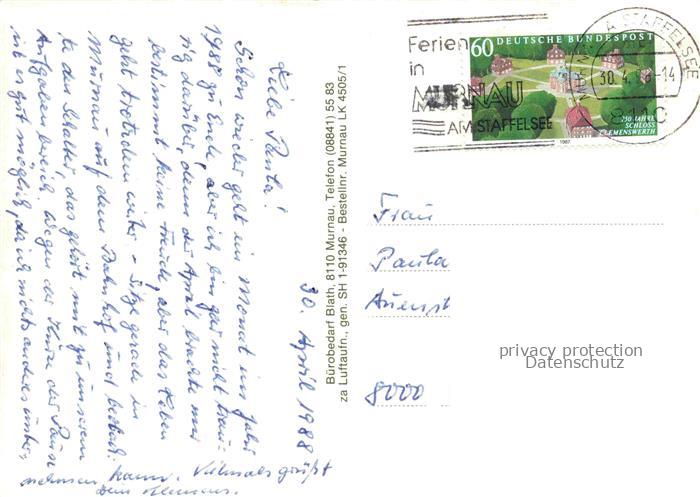 30. April 1988
Liebe Paula!
Schon wieder geht ein Monat im Jahr
1988 zu Ende, aber ich bin gar nicht trau-
rig darüber, denn der April brachte mir
bestimmt keine Freude, aber das Leben
geht trotzdem weiter – Sitze gerade in
Murnau auf dem Bahnhof und beobach-
te den Schalter, das gehört mit zu unserem
Aufgabenbereich. Wegen der Kürze der Pause
ist es gut möglich, da ich nichts anderes unter-
nehmen kann. Vielmals grüßt
Dein
Bürobedarf Blath, 8110 Murnau, Telefon (08841) 55 83
za Luftaufn., gen. SH 1-91346 - Bestellnr. Murnau LK 4505/1
Ferien
in
MURNAU
AM STAFFELSEE
60 DEUTSCHE BUNDESPOST
250 JAHRE
SCHLOSS
CLEMENSWERTH
1987
A STAFFELSEE
30. 4. 88 -14
8110
Frau
Paula
8000
privacy protection
Datenschutz